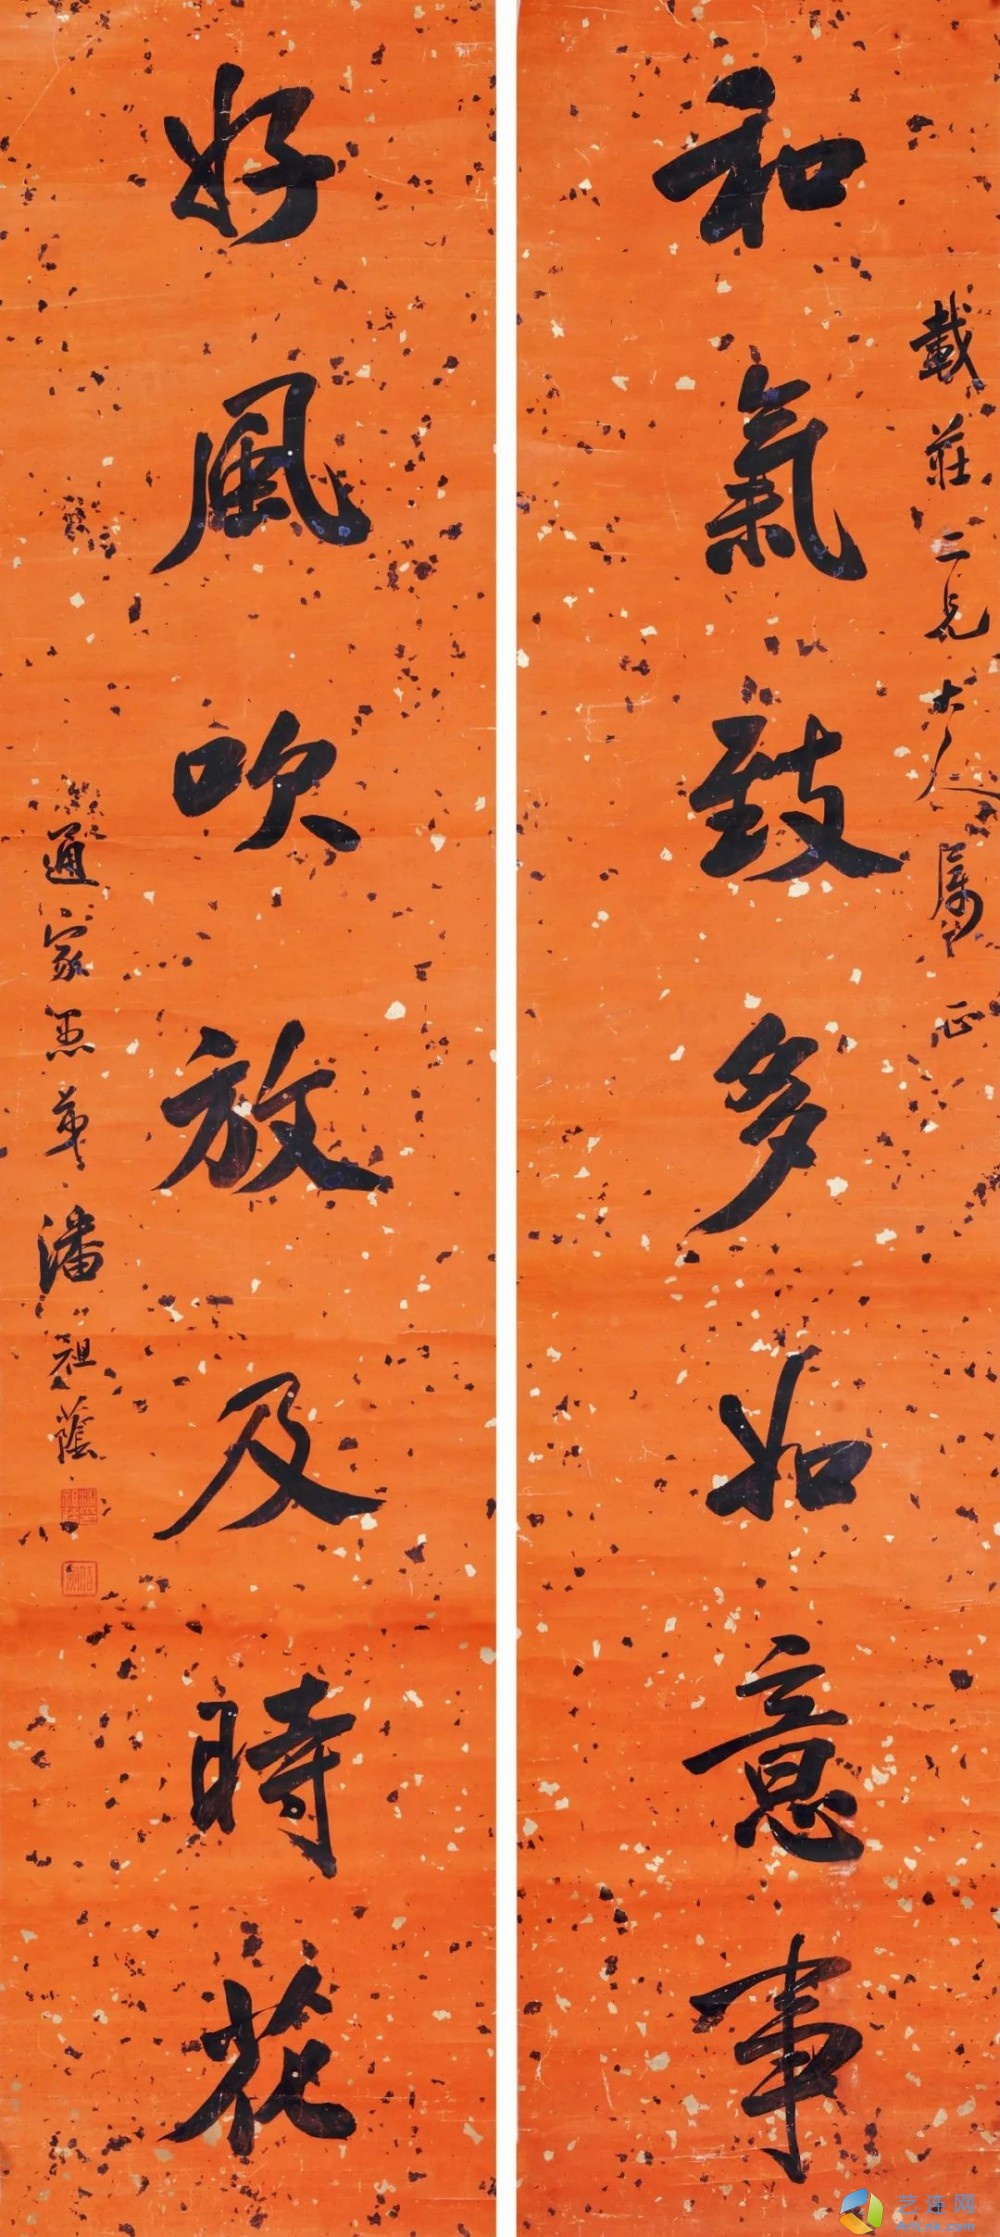 載莊二兄大人屬正
和氣致多如意事
好風吹放及時花
通家愚弟潘祖蔭
艺连网